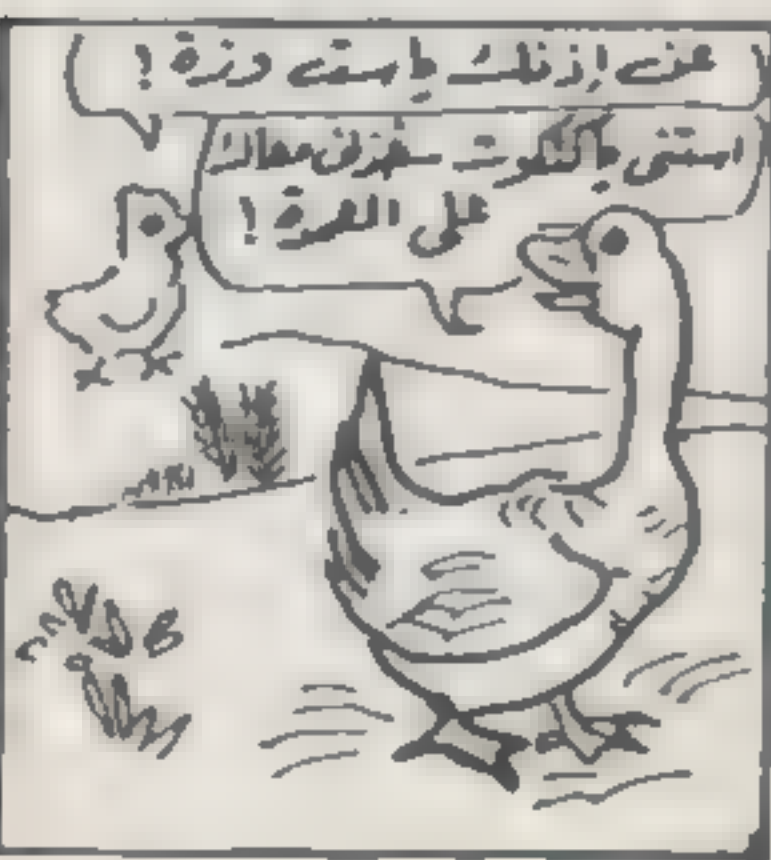 عن إذنك ياست وزة !
استنى ياكتكوت معاك
على الدرة !